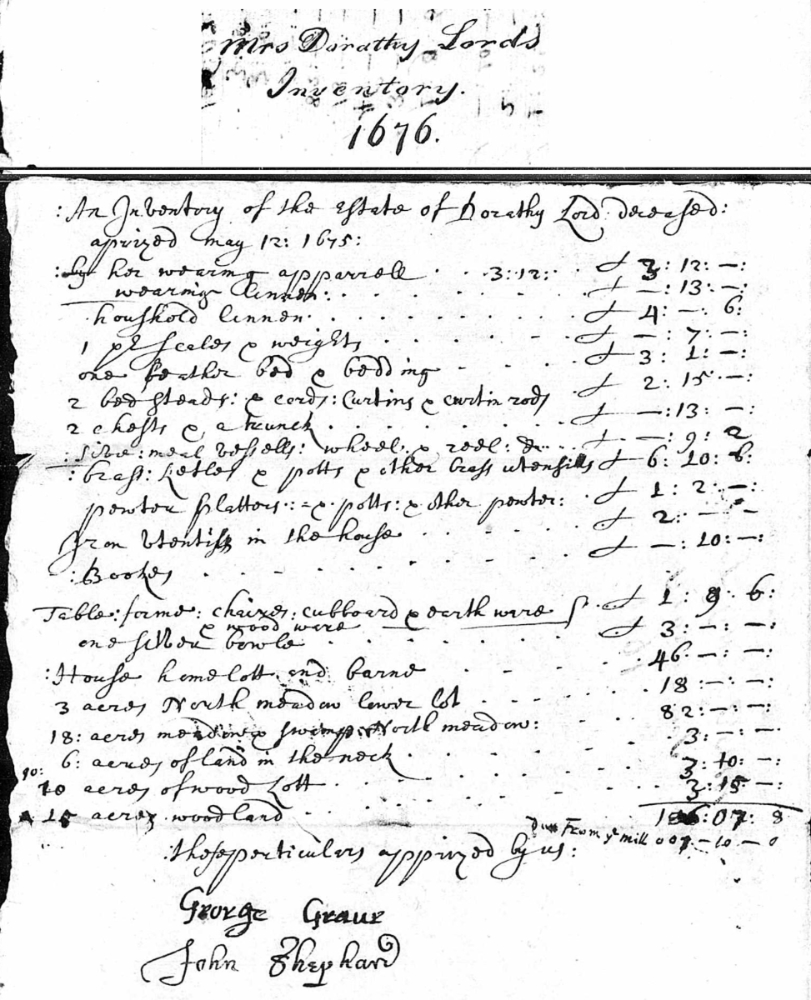 Mrs Dorathy Lords
Inventory.
1676.
:An Inventory of the Estate of Dorathy Lord deceased:
aprized may 12: 1675:
her wearing apparrell . . 3:12: . £ 3: 12: —:
wearing linnen: . . . . . £ —: 13: —:
houshold linnen . . . . . £ 4: —. 6:
1 pr Scales & weights . . . . . £ —: 7: —:
one feather bed & bedding . . . £ 3: 1: —:
2 bedsteads: & cords: Curtins & curtin rods £ 2: 15 —:
2 chests & a trunck . . . . . £ —: 13: —:
: sive: meal vessells: wheel: & reel: &c . . £ —: 9: 2
: brass: Ketles & potts & other brass utensills £ 6: 10: 6:
pewter platters: & potts: & other pewter: . £ 1: 2: —:
Iron Utensills in the house . . . . £ 2: — —
: Bookes . . . . . £ —: 10: —:
Table: forme: chaires: cubboard & earth ware . £ 1: 9: 6:
& wood ware
one silver bowle . . . . . £ 3: —: —:
:House homelott and barne . . . . 46 —: —:
3 acres North meadow lower lot . . . . 18: —: —:
18: acres meadow & swamp North meadow: . . 82: —: —:
6: acres of land in the neck . . . . 3: —: —:
10:
10 acres of wood Lott . . . . 3: 10: —:
15 acres woodland . . . . 3: 15: —:
186: 07: 8
Due From ye mill 007 — 10 — 0
:these perticulars apprized by us:
George Grave
John Shephard